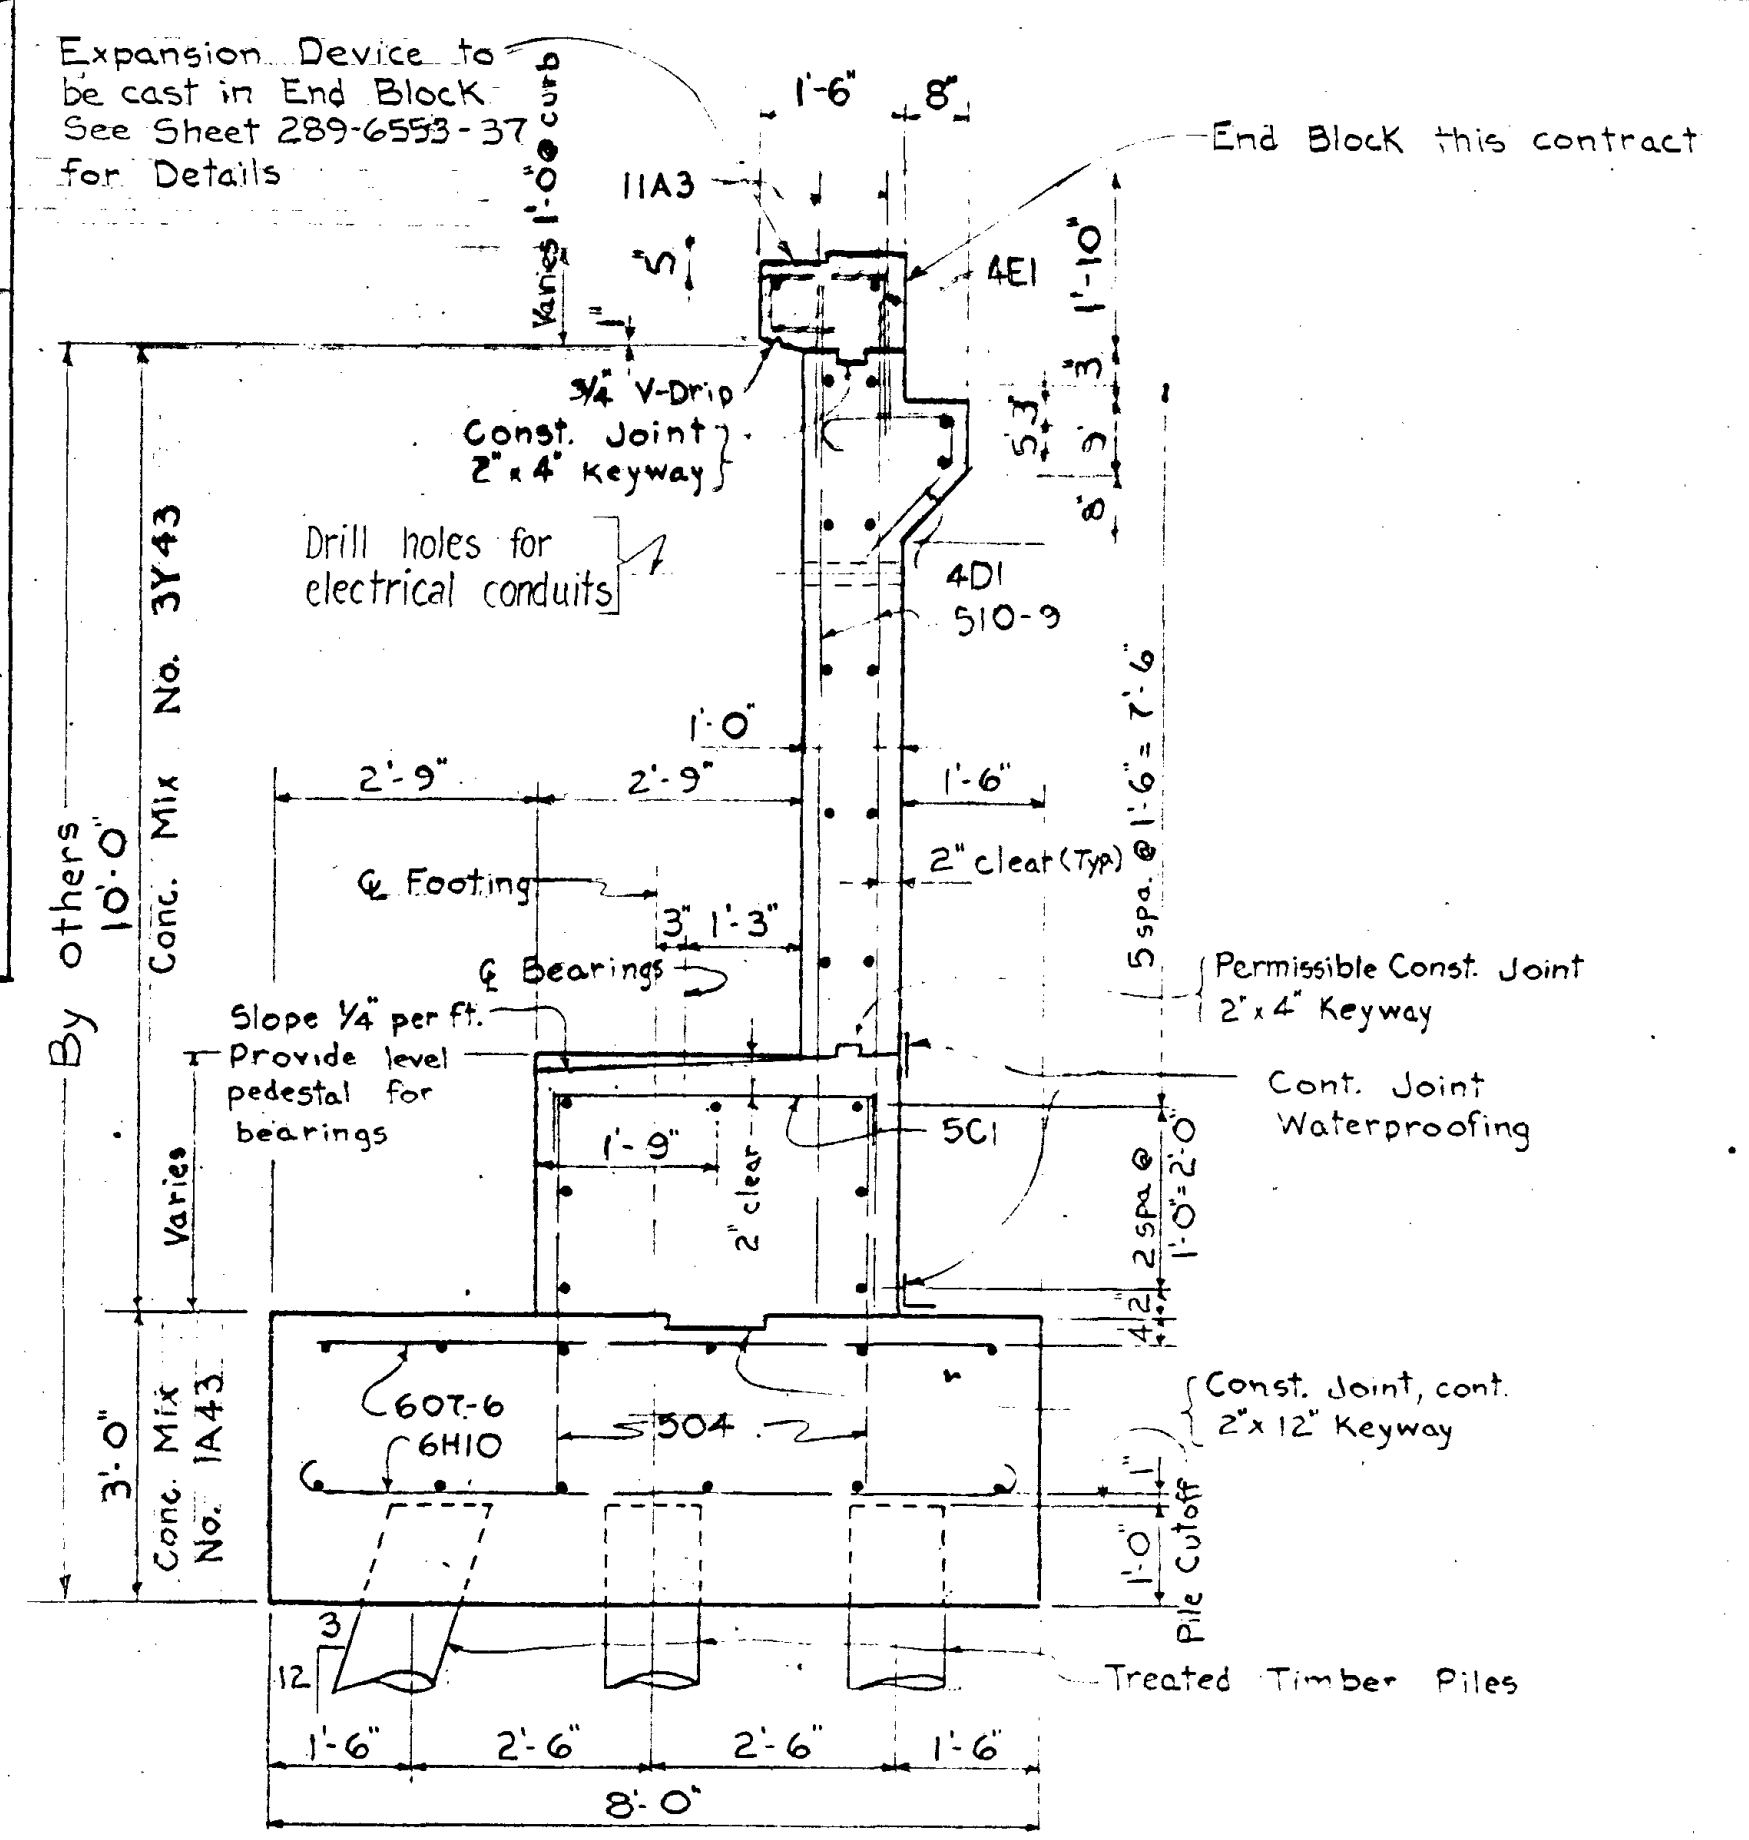 Expansion Device to
be cast in End Block
See Sheet 289-6553-37
for Details
Varies 1'-0" @ curb
1'-6"
8"
End Block this contract
11A3
5"
4E1
1'-10"
1"
3"
3/4" V-Drip
Const. Joint
2" x 4" Keyway
5"
3"
9"
8"
Drill holes for
electrical conduits
4D1
510-9
By others
10'-0"
Conc. Mix No. 3Y43
1'-0"
2'-9"
2'-9"
1'-6"
5 spa. @ 1'-6" = 7'-6"
2" clear (Typ)
℄ Footing
3"
1'-3"
℄ Bearings
Permissible Const. Joint
2" x 4" Keyway
Slope 1/4" per ft.
Provide level
pedestal for
bearings
Cont. Joint
Waterproofing
5C1
1'-9"
2" clear
Varies
2 spa @
1'-0" = 2'-0"
2"
4"
3'-0"
Conc. Mix
No. 1A43
607-6
6H10
504
Const. Joint, cont.
2" x 12" Keyway
1"
1'-0"
Pile Cutoff
3
12
Treated Timber Piles
1'-6"
2'-6"
2'-6"
1'-6"
8'-0"